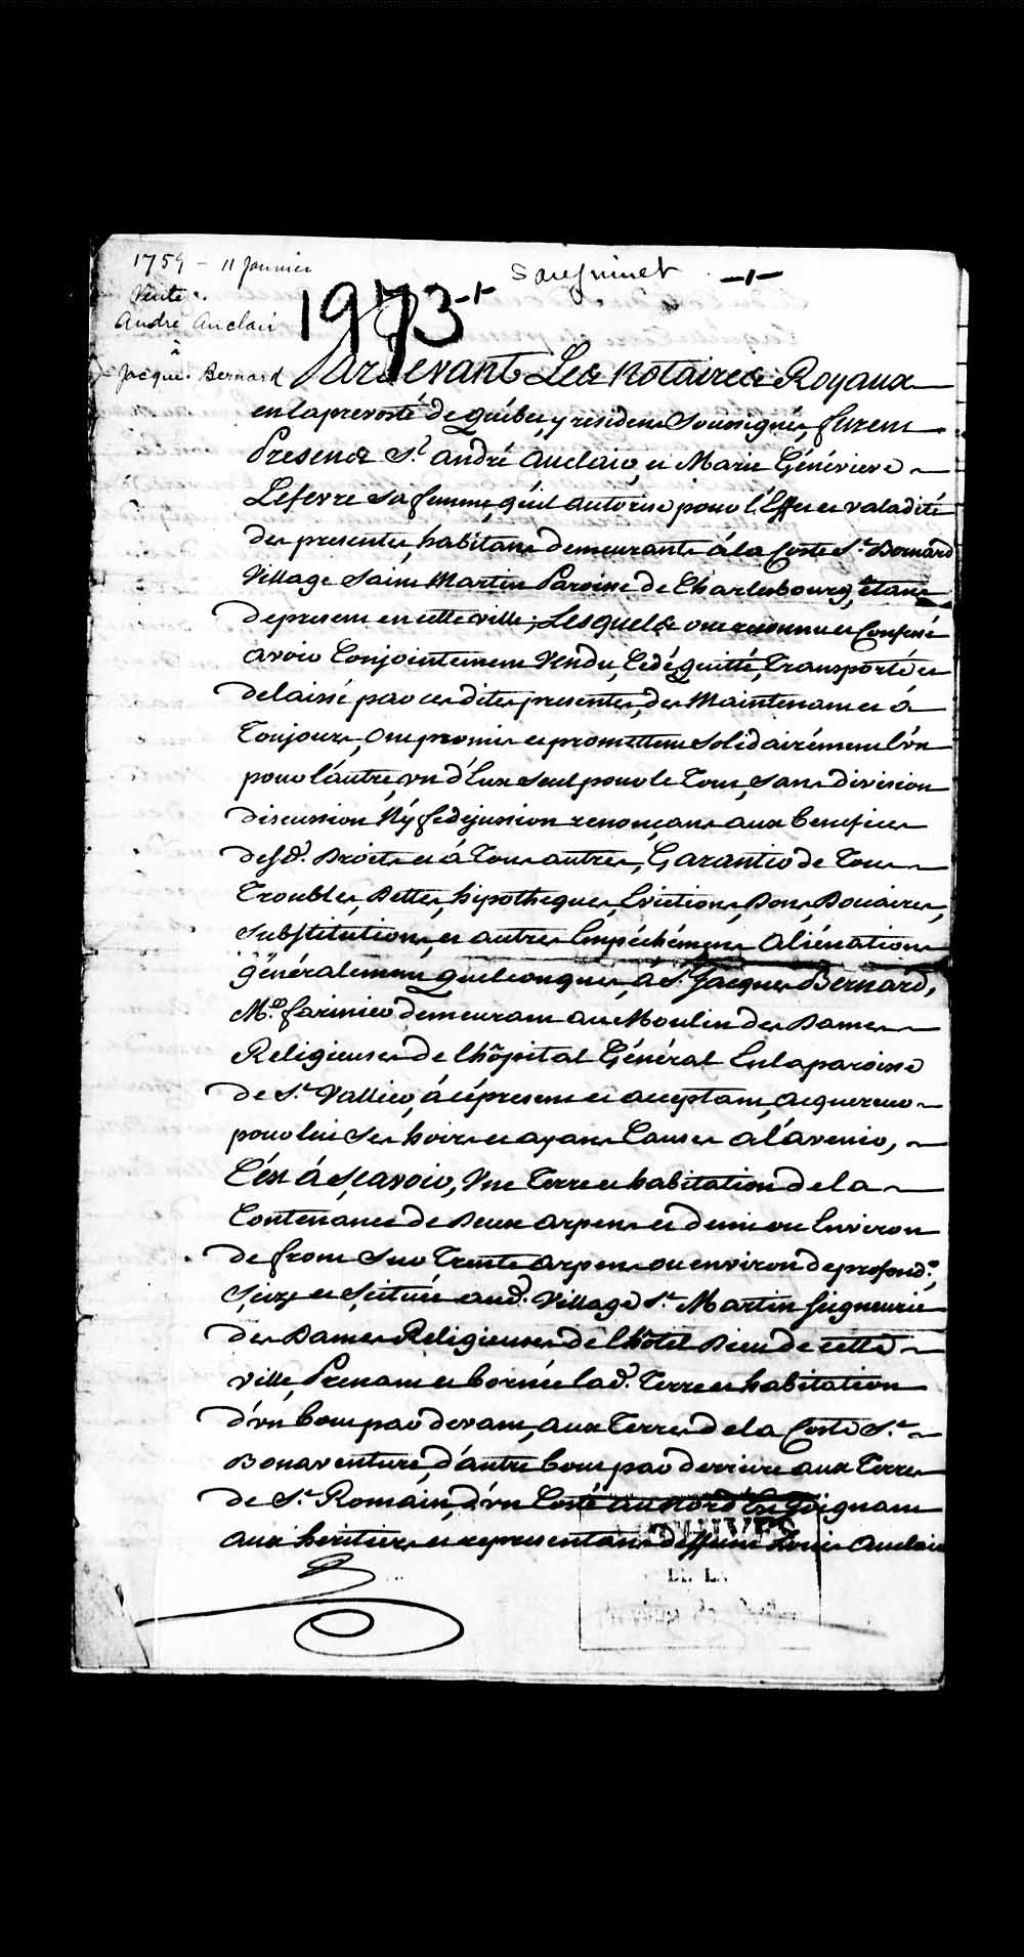 1759 – 11 Janvier
Sauguinet
Vente
1973
André Auclair
à
Jacques Bernard
Pardevant Les Notaires Royaux
en la prevosté de québec y residens Soussignés, furent
Presens Sr. andré auclair, et Marie Généviéve
Lefevre sa femme, qu'il autorise pour l'Effet et valadité
des presentes, habitans demeurants à la Coste St. Bernard
Village Saint Martin Paroisse de Charlesbourg, étans
de present en cette ville; Lesquels ont reconnu et Confessé
avoir Conjointement Vendu, Cedé, quitté, Transporté et
delaissé par ces dites presentes, des Maintenant et à
Toujours, ont promis et promettent solidairément l'vn
pour l'autre, vn d'Eux seul pour le Tout, sans division
discussion Ny fidejussion renonçans aux benefices
desd. Droits et à Tous autres, Garantir de Tous
Troubles, Dettes, hipotheques, Evictions, Dons, Doüaires,
Substitutions, et autres Empéchémens alienations
généralement quelconques, à Sr. Jacques Bernard,
Me. farinier demeurant au Moulin des Dames
Religieuses de l'hôpital Général En la paroisse
de St. Vallier, à cé present et acceptant, acquereur
pour lui Ses hoirs et ayans Causes a l'avenir,
C'est à sçavoir, Une Terre et habitation de la
Contenance de Deux arpens et demi ou Environ
de front sur Trente arpens ou environ de profond.
Scize et Scituée aud. Village St. Martin seigneurie
des Dames Religieuses de l'hôtel Dieu de cette
ville, Prenant et bornée lad. Terre et habitation
d'vn bout par devant, aux Terres de la Coste St.
Bonaventure, d'autre bout par derriere aux Terres
de St. Romain, d'vn Costé au Nord Est Joignant
aux heritiers et representans deffunt Louis Auclair
ARCHIVES
DE LA